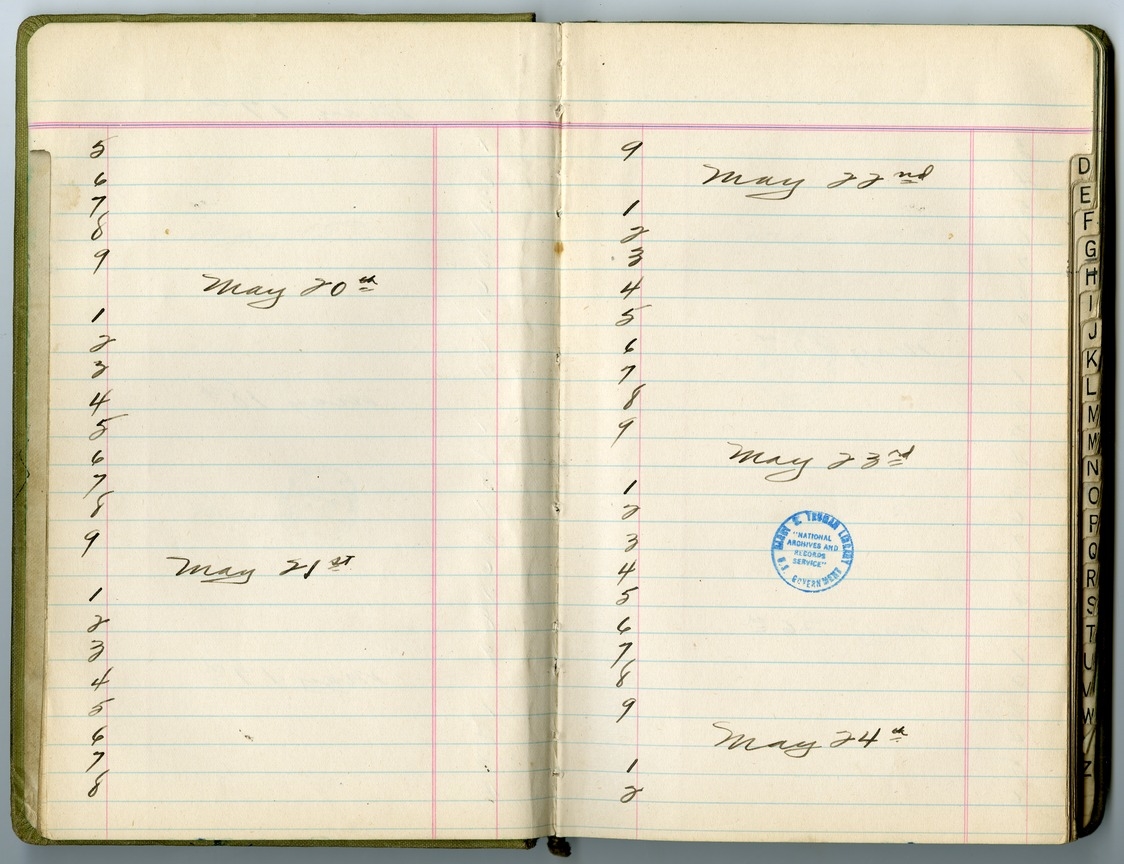 5
6
7
8
9
May 20th
1
2
3
4
5
6
7
8
9
May 21st
1
2
3
4
5
6
7
8
9
May 22nd
1
2
3
4
5
6
7
8
9
May 23rd
1
2
3
4
5
6
7
8
9
May 24th
1
2
HARRY S. TRUMAN LIBRARY
"NATIONAL
ARCHIVES AND
RECORDS
SERVICE"
U.S. GOVERNMENT
D
E
F
G
H
I
J
K
L
M
Mc
N
O
P
Q
R
S
T
U
V
W
Y
Z